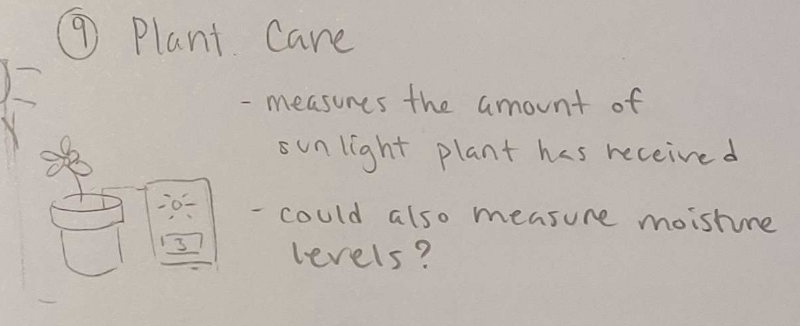 9 Plant Care
- measures the amount of
sunlight plant has received
- could also measure moisture
levels?
3